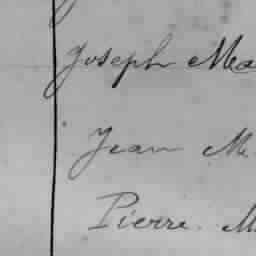 Joseph Ma
Jean M.
Pierre. M